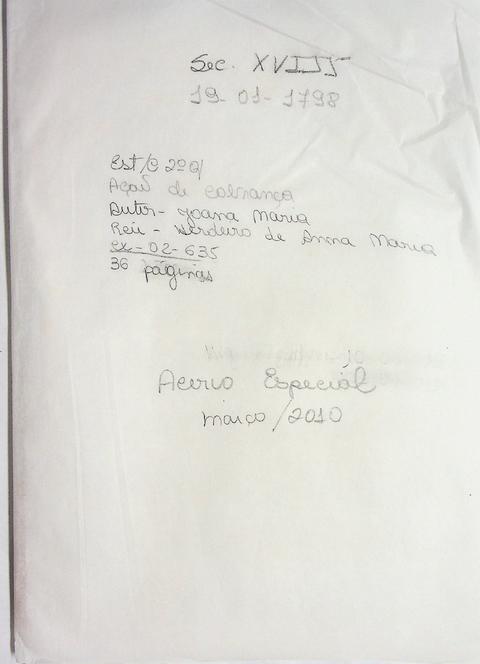 Sec. XVIII
19-01-1798
Est/C 2º O/
Ação de Cobrança
Autor - Joana Maria
Réu - Herdeiro de Anna Maria
cx-02-635
36 páginas
Acervo Especial
março/2010